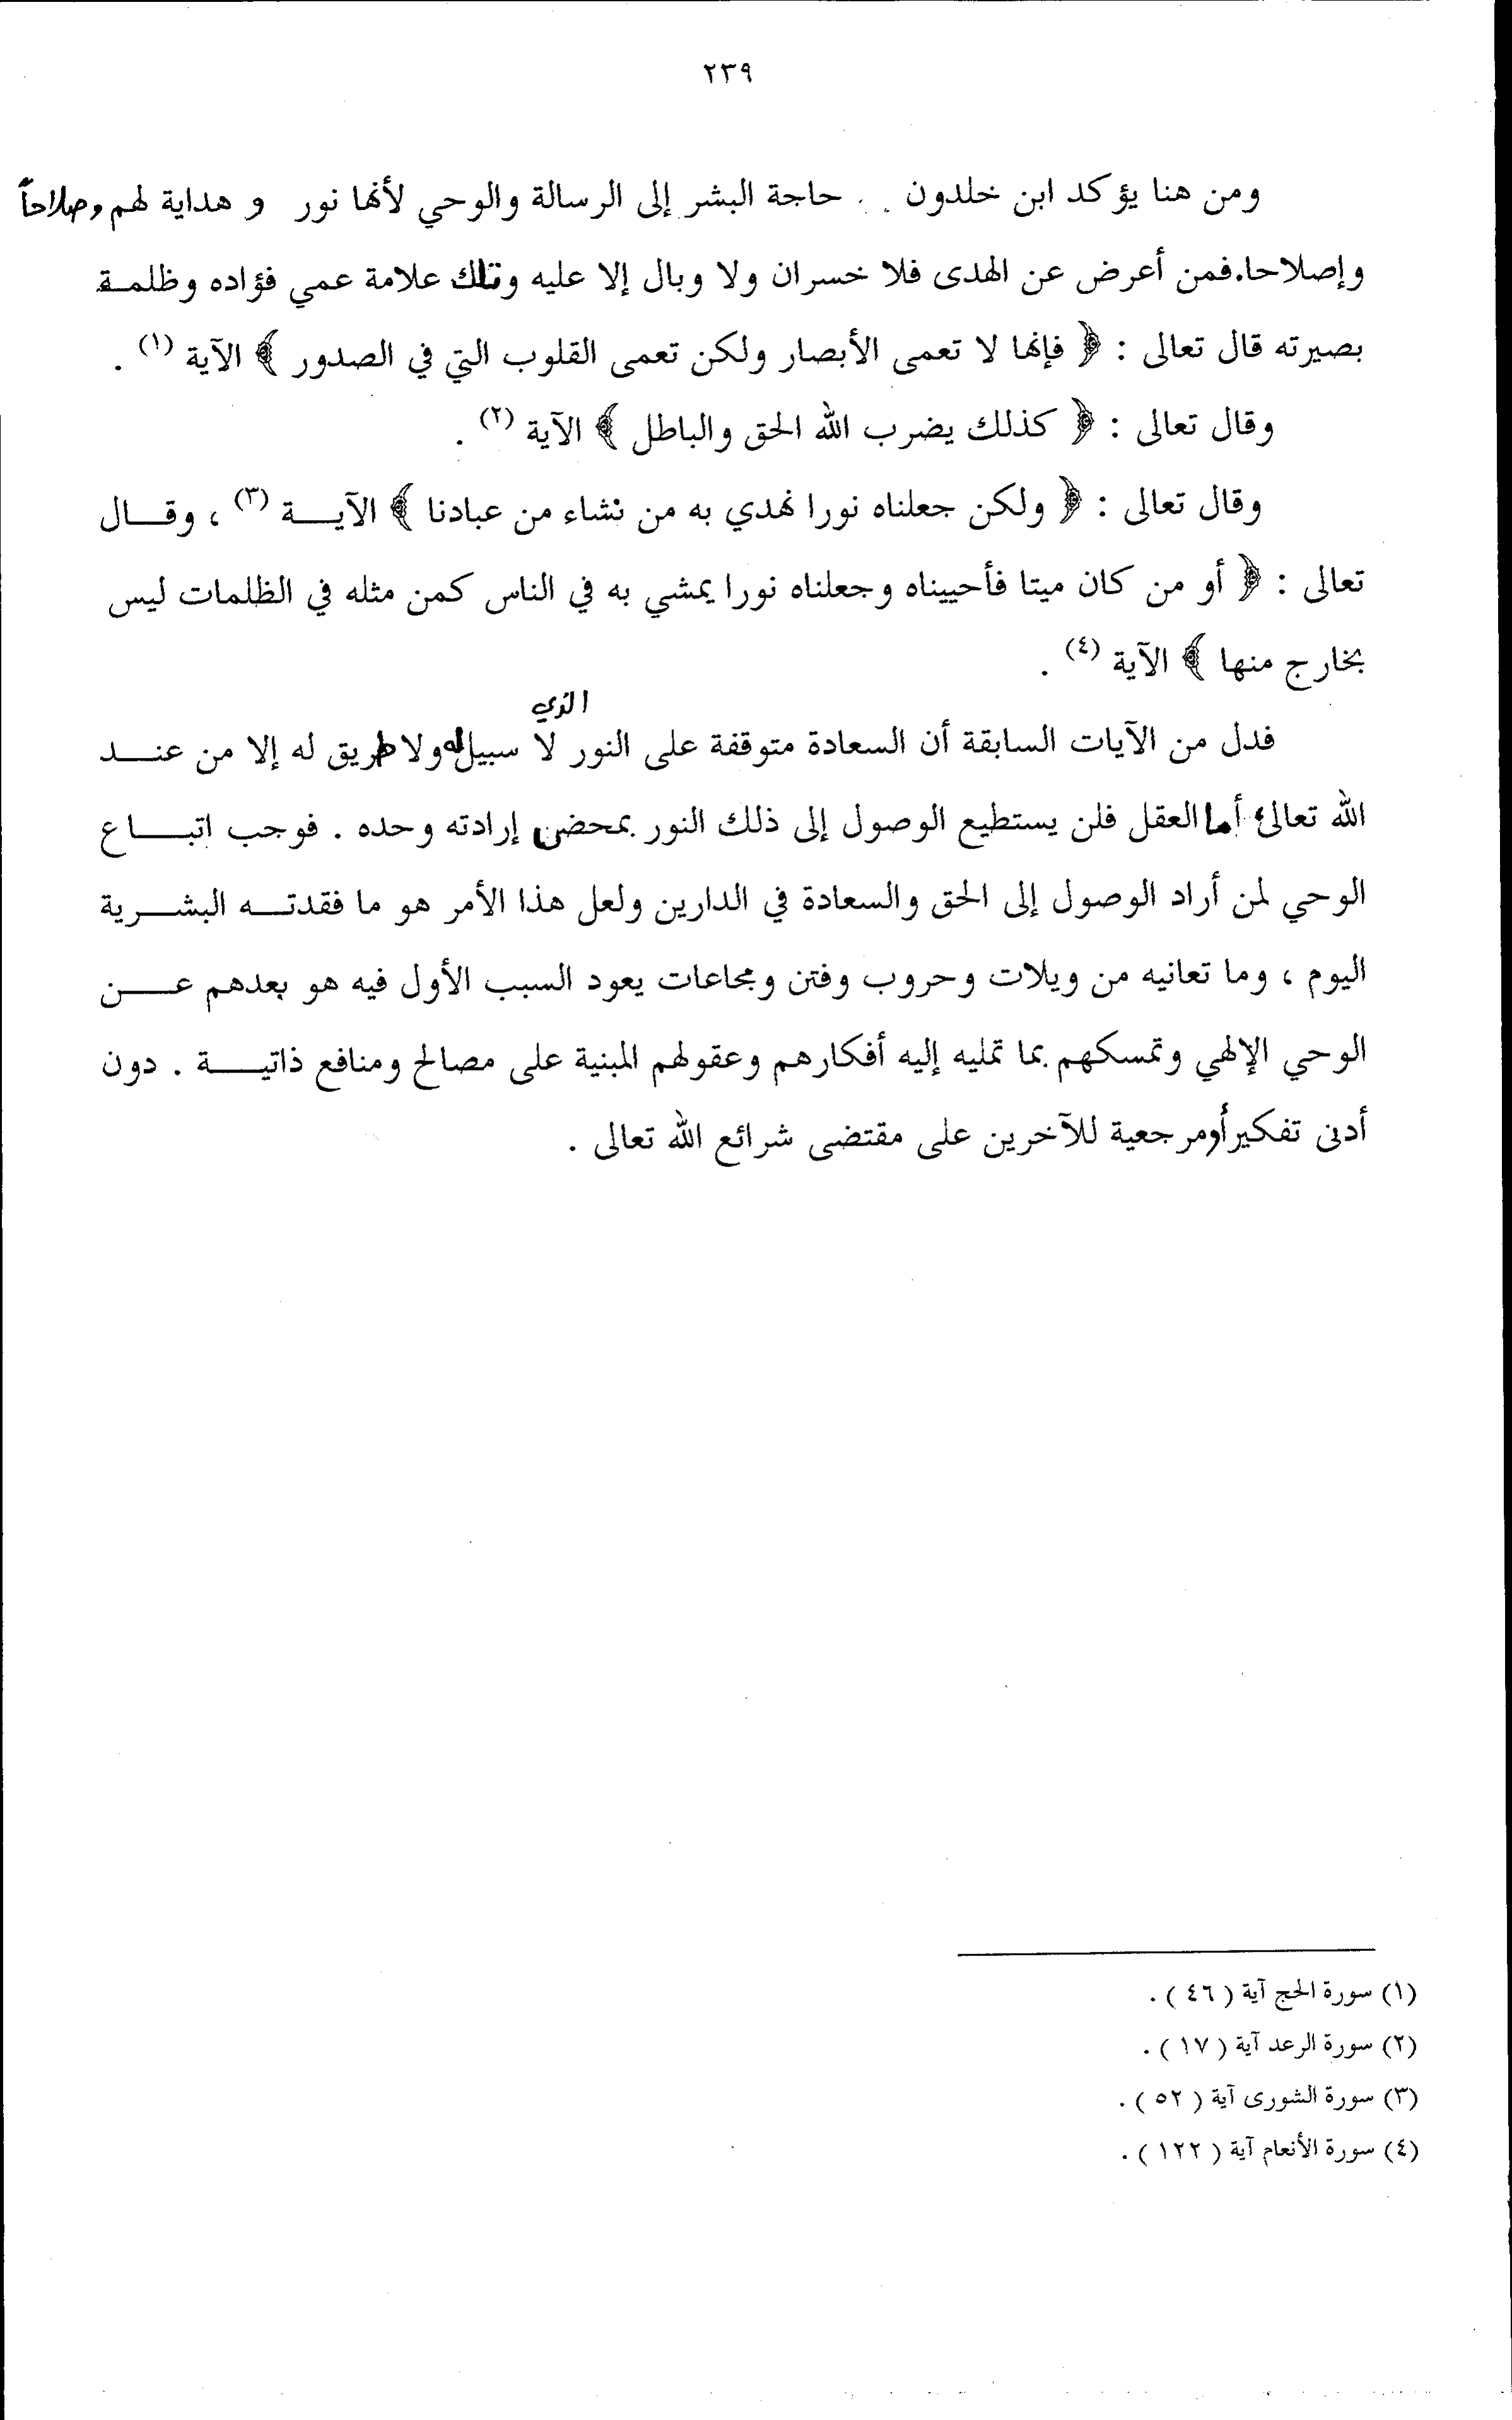 ٢٣٩
ومن هنا يؤكد ابن خلدون حاجة البشر إلى الرسالة والوحي لأنها نور و هداية لهم وصلاحاً
وإصلاحا.فمن أعرض عن الهدى فلا خسران ولا وبال إلا عليه وتلك علامة عمي فؤاده وظلمة
بصيرته قال تعالى : ﴿ فإنها لا تعمى الأبصار ولكن تعمى القلوب التي في الصدور ﴾ الآية (١) .
وقال تعالى : ﴿ كذلك يضرب الله الحق والباطل ﴾ الآية (٢) .
وقال تعالى : ﴿ ولكن جعلناه نورا نهدي به من نشاء من عبادنا ﴾ الآيـــة (٣) ، وقـــال
تعالى : ﴿ أو من كان ميتا فأحييناه وجعلناه نورا يمشي به في الناس كمن مثله في الظلمات ليس
بخارج منها ﴾ الآية (٤) .
الذي
فدل من الآيات السابقة أن السعادة متوقفة على النور لا سبيل له ولا طريق له إلا من عنـــد
الله تعالى، أما العقل فلن يستطيع الوصول إلى ذلك النور بمحض إرادته وحده . فوجب اتبـــاع
الوحي لمن أراد الوصول إلى الحق والسعادة في الدارين ولعل هذا الأمر هو ما فقدتـــه البشـــرية
اليوم ، وما تعانيه من ويلات وحروب وفتن ومجاعات يعود السبب الأول فيه هو بعدهم عـــن
الوحي الإلهي وتمسكهم بما تمليه إليه أفكارهم وعقولهم المبنية على مصالح ومنافع ذاتيـــة . دون
أدنى تفكير أو مرجعية للآخرين على مقتضى شرائع الله تعالى .
(١) سورة الحج آية ( ٤٦ ) .
(٢) سورة الرعد آية ( ١٧ ) .
(٣) سورة الشورى آية ( ٥٢ ) .
(٤) سورة الأنعام آية ( ١٢٢ ) .